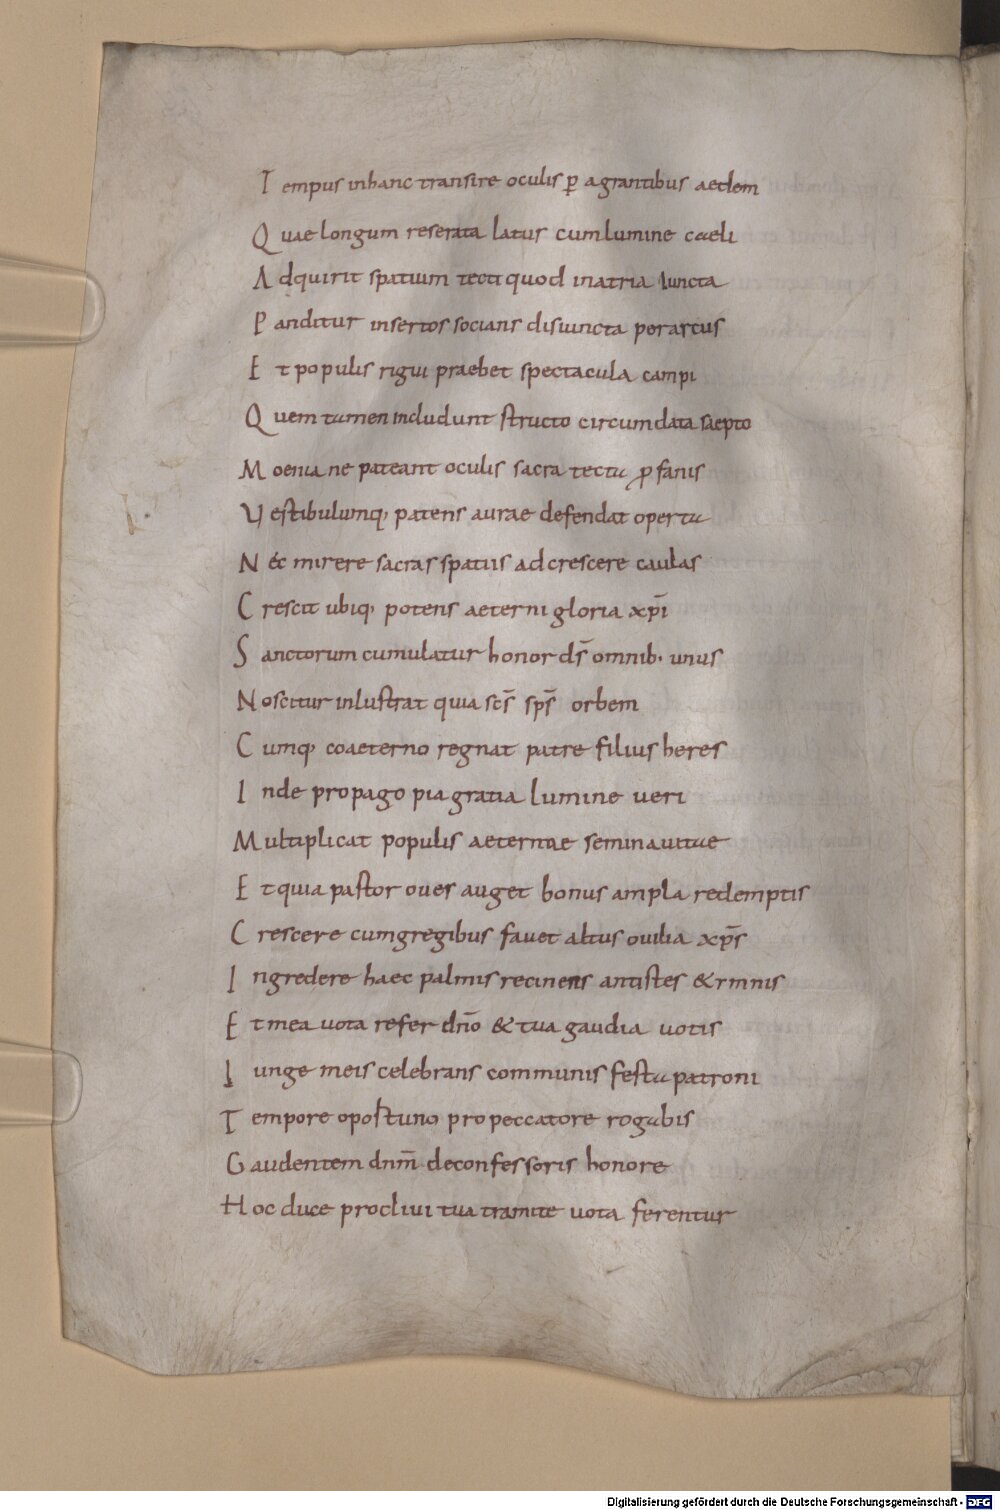 T empus inhanc transire oculis ꝑ agrantibus aedem
Q uae longum reserata latus cumlumine caeli
A dquirit spatium tecti quod inatria iuncta
P anditur insertos socians disiuncta perartus
E t populis rigui praebet spectacula campi
Q uem tamen includunt structo circumdata saepto
M oenia ne pateant oculis sacra tecta ꝓfanis
V estibulumq; patens aurae defendat operta
N ec mirere sacras spatiis adcrescere caulas
C rescit ubiq; potens aeterni gloria xp̄i
S anctorum cumulatur honor ds̄ omnib; unus
N oscitur inlustrat quia scs̄ sps̄ orbem
C umq; coaeterno regnat patre filius heres
I nde propago pia gratia lumine ueri
M ultiplicat populis aeternae semina uitae
E t quia pastor oues auget bonus ampla redemptis
C rescere cumgregibus fauet altus ouilia xp̄s
I ngredere haec palmis recinens antistes & rmnis
E t mea uota refer dn̄o & tua gaudia uotis
I unge meis celebrans communis festa patroni
T empore oportuno propeccatore rogabis
G audentem dnm̄ deconfessoris honore
H oc duce procliui tua tramite uota ferentur
Digitalisierung gefördert durch die Deutsche Forschungsgemeinschaft - DFG